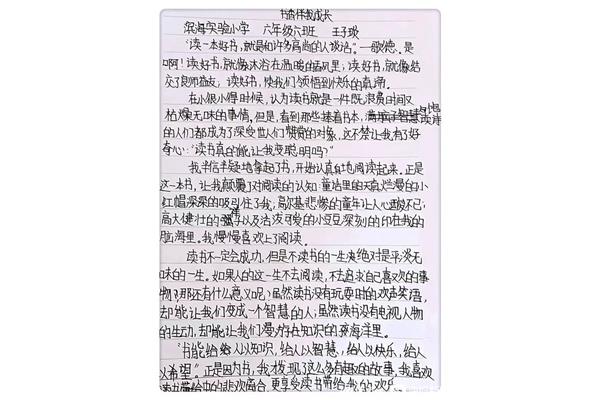 书香伴我成长
滨海实验小学 六年级六班 王子璇
“读一本好书,就是和许多高尚的人谈话。”—歌德.是
啊!读好书,就像沐浴在温暖的春风里;读好书,就像结
交了良师益友;读好书,使我们领悟到快乐的真谛。
在小很小得时候,认为读书就是一件既浪费时间又
枯燥无味的事情。但是,看到那些捧着书本,
的人们都成为了深受世人 的对象,这不禁让我有了好
奇心:“读书真的能让我变聪明吗?”
我半信半疑地拿起了书,开始认真地阅读起来。正是
这一本书,让我颠覆了对阅读的认知:童话里的天真烂漫的小
红帽深深的吸引住了我,高尔基悲惨的童年让人心酸不已;
高大健壮的 以及活泼可爱的小豆豆深刻的印在我的
脑海里。我慢慢喜欢上了阅读。
读书不一定会成功,但是不读书的一生决绝对是平淡无
味的一生。如果人的这一生不去阅读,不去追求自己喜欢的事
物?那还有什么意义呢?虽然读书没有玩耍时的欢声笑语,
却能让我们变成一个智慧的人;虽然读书没有电视人物
的生动,却能让我们漫游在知识的海洋里。
“书能给给人以知识,给人以智慧,给人以快乐,给人
以希望。”正是因为书,我才发现了这么多有趣的故事,我喜欢
读书带给我的